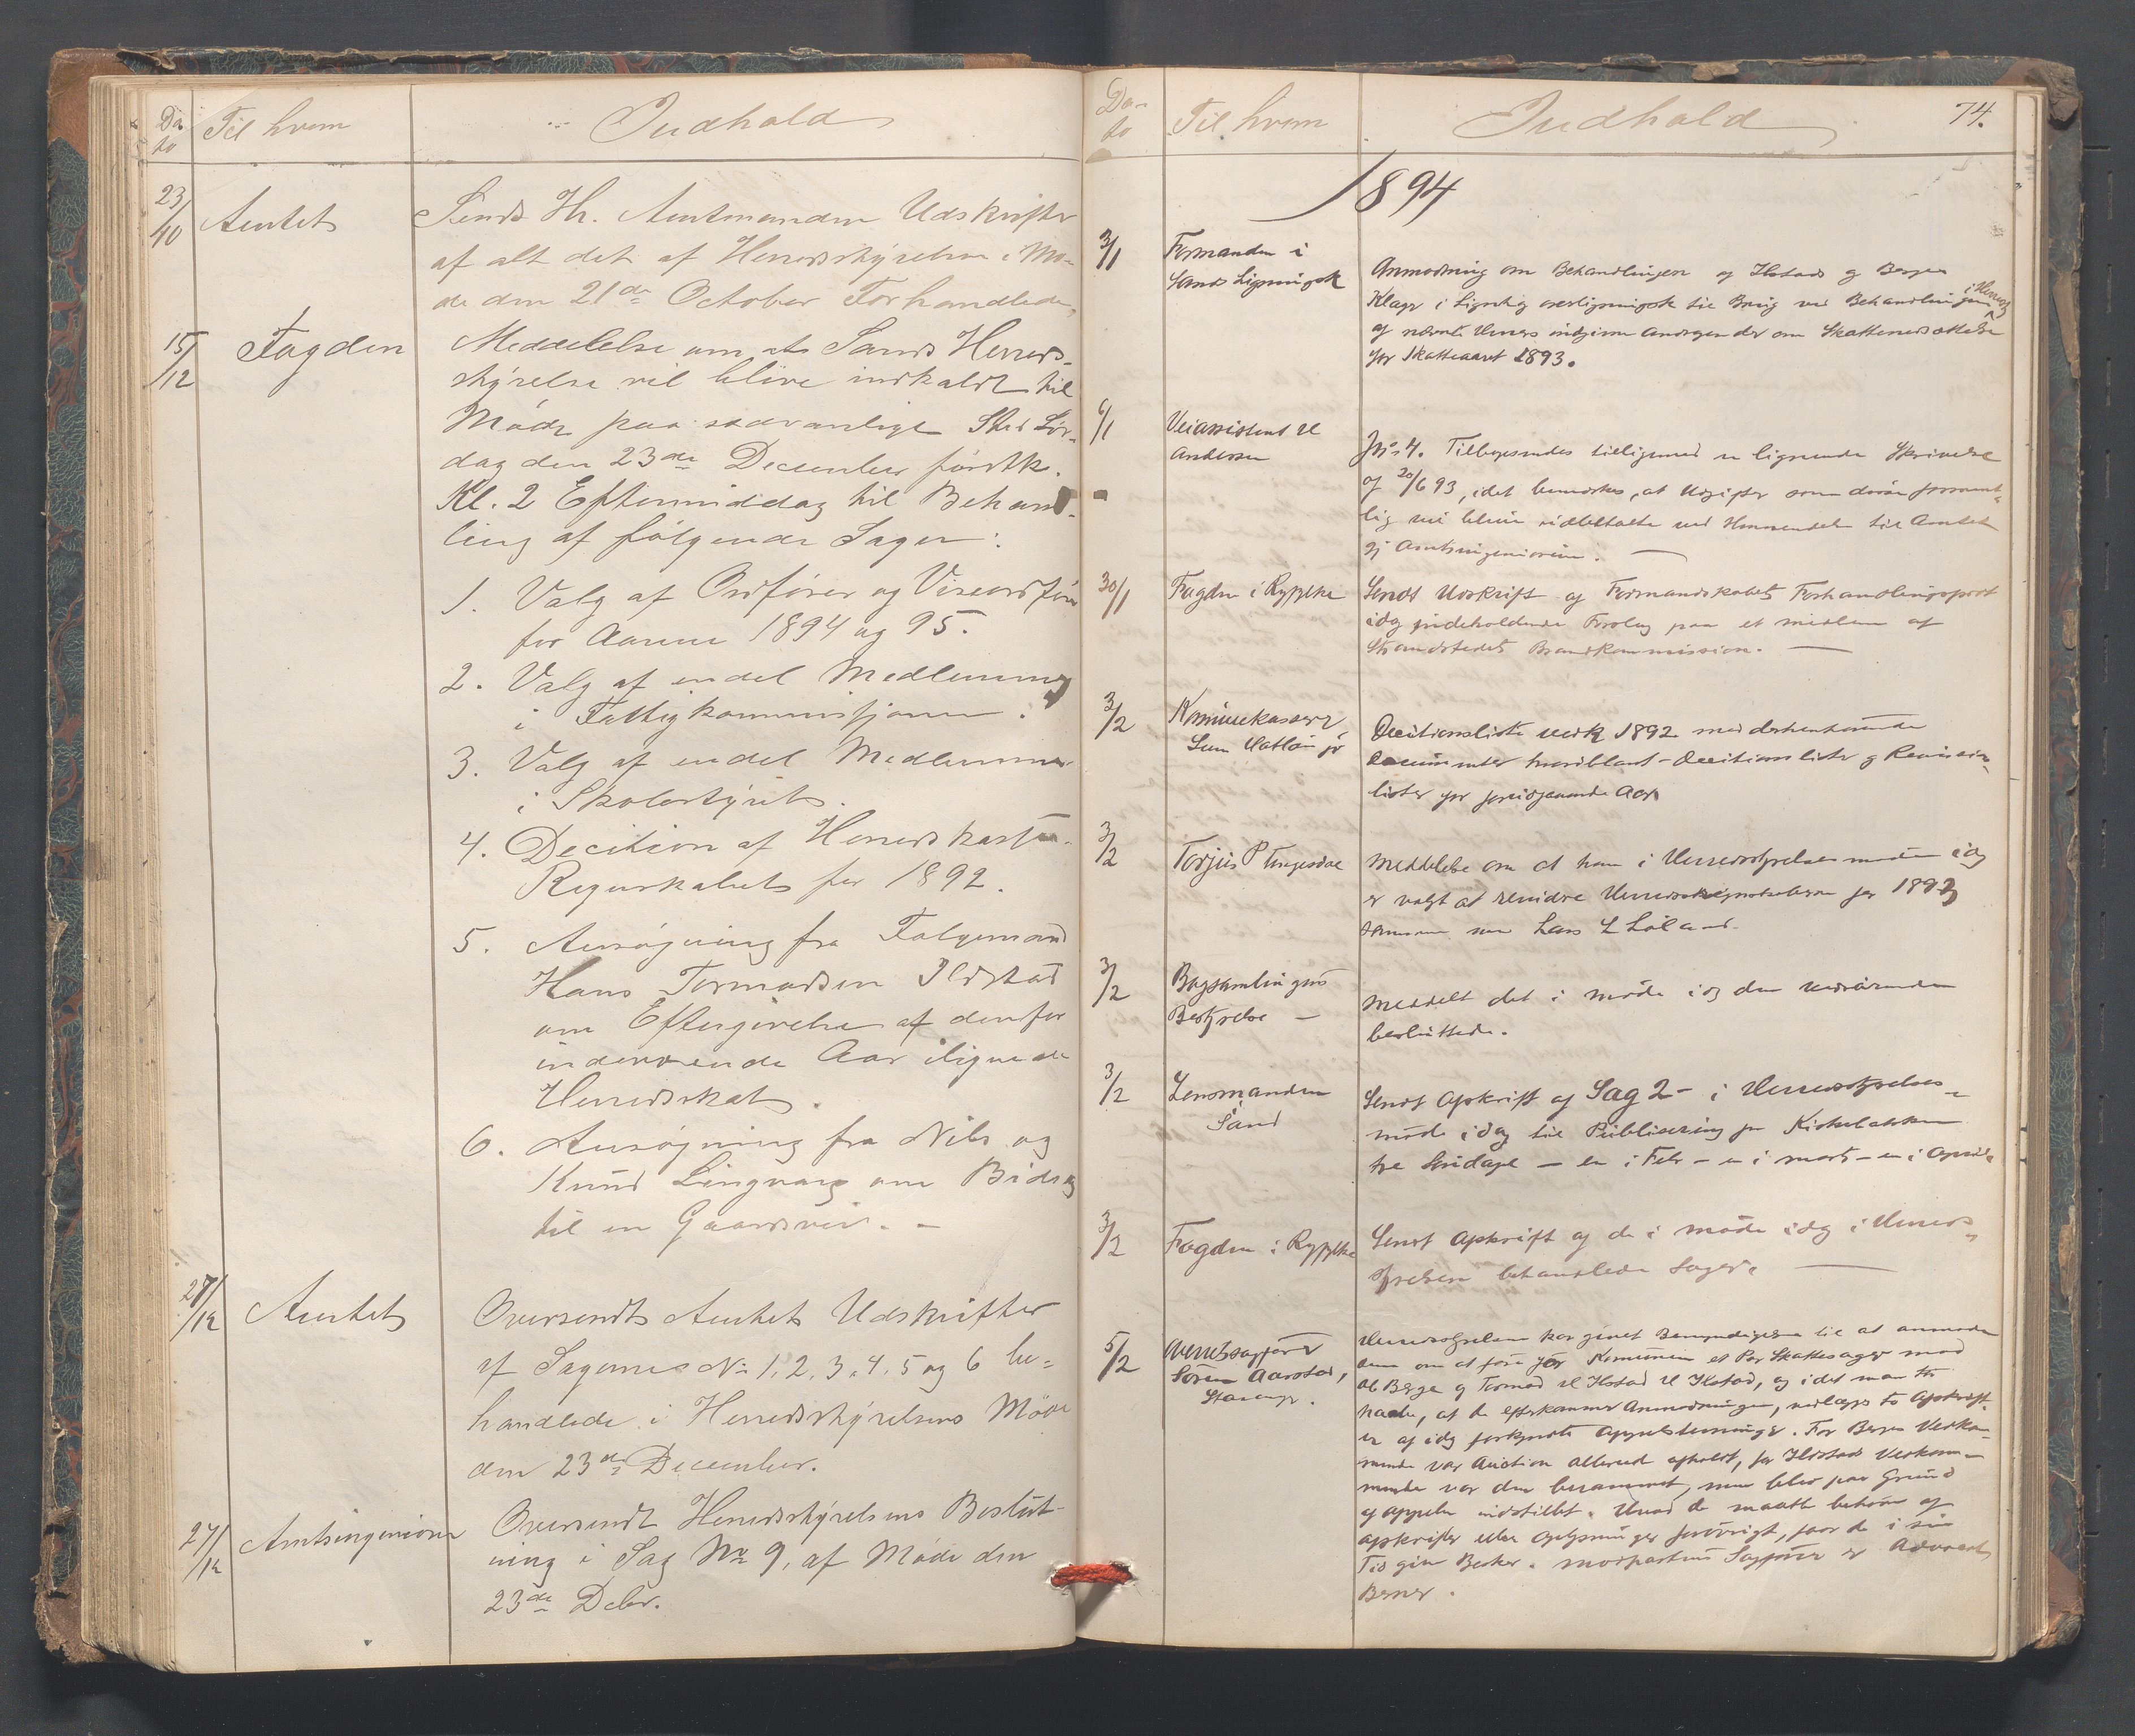 Da-
to
Til hvem
Indhold
23/10
Amtet
Sendt Hr. Amtmanden Udskrifter
af alt det af Herredsstyrelsen i Mø-
de den 21de October Forhandlede,
15/12
Fogden
Meddelelse om at Sands Herreds-
styrelse vil blive indkaldt til
Møde paa sædvanligt Sted Lør-
dag den 23de December førstk.
Kl. 2 Eftermiddag til Behand-
ling af følgende Sager:
1. Valg af Ordfører og Viceordfører
for Aarene 1894 og 95.
2. Valg af endel Medlemmer
i Fattigkommissjonen.
3. Valg af endel Medlemmer
i Skolestyret.
4. Decition af Herredskasse-
Regnskabet for 1892.
5. Ansøgning fra Følgemand
Hans Tormodsen Ilstad
om Eftergivelse af den for
indeværende Aar ilignede
Herredsskat.
6. Ansøgning fra Nils og
Knud Lingvang om Bidrag
til en Gaardsvei. -
27/12
Amtet
Oversendt Amtet Udskrifter
af Sagerne No 1, 2, 3, 4, 5 og 6 be-
handlede i Herredsstyrelsens Møde
den 23de December.
27/12
Amtsingeniøren
Oversendt Herredsstyrelsens Beslut-
ning i Sag No 9, af Møde den
23de Debr.
Da-
to
Til hvem
Indhold
74.
1894
3/1
Formanden i
Sands Ligningsk
Anmodning om Behandlingen af Ilstads og Berges
Klager i Lignings og overligningsk til Brug ved Behandlingen i Herredsst
af nævnte indgivne Andragender om Skattenedsættelse
for Skatteaaret 1893.
6/1
Veiassistent
Andersen
Jr. 4. Tilbagesendes tilligemed en lignende Skrivelse
af 20/6 93, idet bemærkes, at Udgifter som disse
lig vil blive udbetalte ved Henvendelse til Amtet
gj Amtsingeniøren. —
30/1
Fogden i Ryfylke
Sendt Udskrift af Formandskabets Forhandlingsprot
idag indeholdende Forslag paa et medlem af
Strandstedets Brandkommission. —
3/2
Kommunekasserer
Decitionsliste vedk 1892 med dertilhørende
Documenter hvoriblant - Decitionslister og Revisions-
lister for foregaaende Aar
3/2
Torjus P
Meddelelse om at han i Herredsstyrelsens møde idag
er valgt at revidere Herredsregnskaberne for 1893
sammen med Lars L Løland.
3/2
Bogsamlingens
Bestyrelse —
Meddelt det i møde idag den vedrørende
besluttede.
3/2
Lensmanden
i
Sand
Sendt Afskrift af Sag 2 - i Herredsstyrelses-
møde idag til Publisering paa Kirkebakken
tre Søndage — en i Febr - en i marts - en i April
3/2
Fogden i Ryfylke
Sendt Afskrift af de i møde idag i Herreds-
styrelsen behandlede Sager. —
5/2
Overretssagfører
Søren Aarstad,
Stavanger.
Herredsstyrelsen har givet Bemyndigelse til at anmode
Dem om at føre for Kommunen et Par Skattesager mod
Berge og Tormod Ilstad, og idet man tør
haabe, at De efterkommer Anmodningen, vedlægges to Afskrift-
er af idag forkyndte Appelstevninger. For Berges Vedkom-
mende var Auction allerede afholdt, for Ilstads Vedkom-
mende var den berammet, men blev paa Grund
af Appellen indstillet. Hvad De maatte behøve af
Afskrifter eller Oplysninger forøvrigt, faar De i sin
Tid give Besked. Modpartens Sagfører er Advocat
Berner.